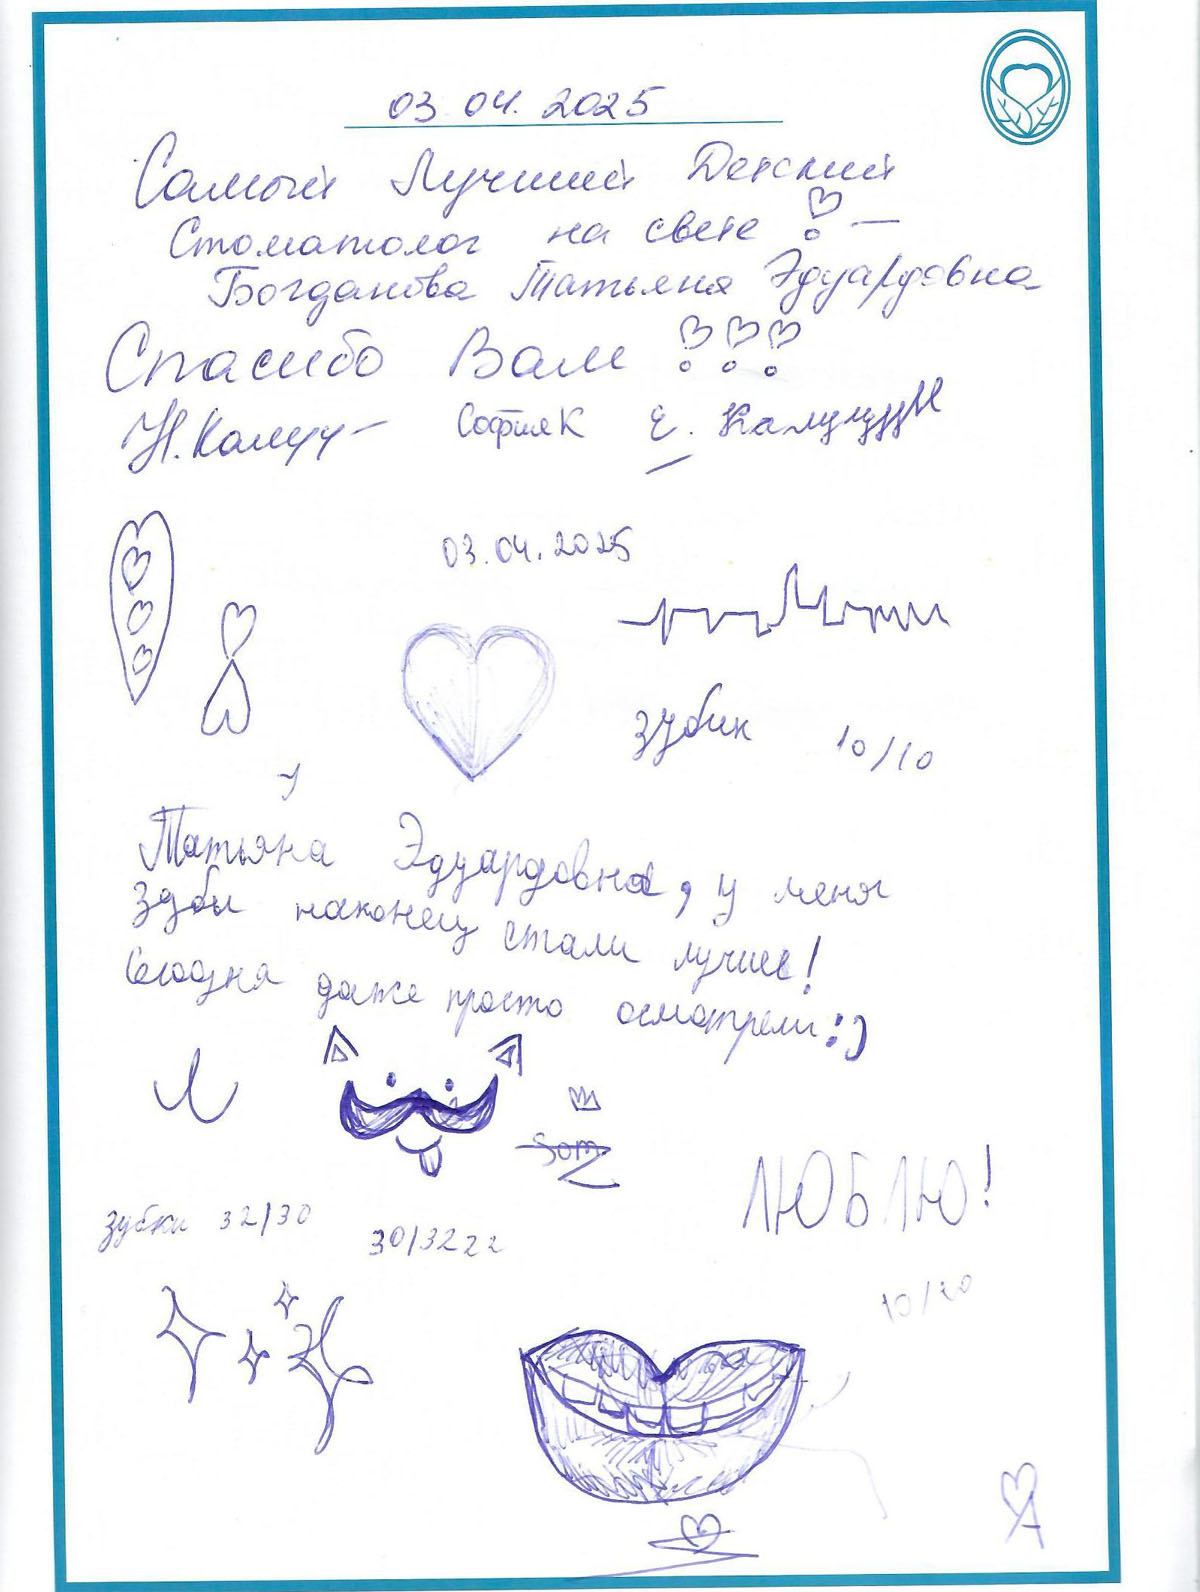 03.04.2025
Самый Лучший Детский
Стоматолог на свете! —
Богданова Татьяна Эдуардовна
Спасибо Вам!!!
Н. София К Е.
03.04.2025
зубик 10/10
Татьяна Эдуардовна, у меня
зубы наконец стали лучше!
Сегодня даже просто осмотрели :)
Som
ЛЮБЛЮ!
зубки 32/30
30/32 22
10/20